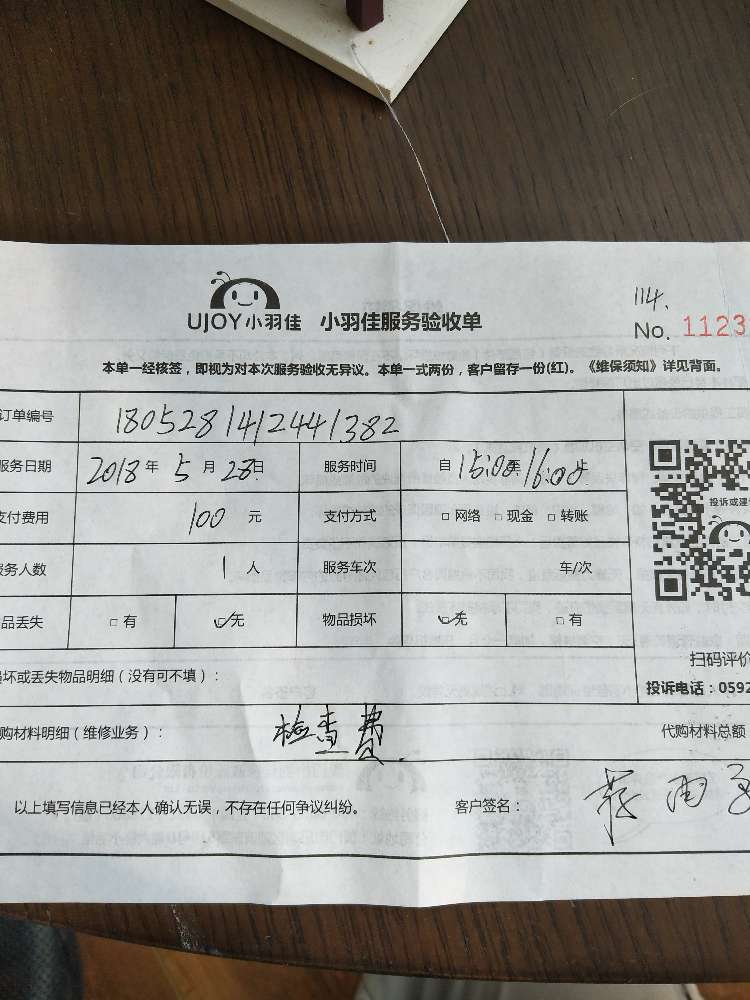 114.
UJOY小羽佳 小羽佳服务验收单
No. 1123
本单一经核签，即视为对本次服务验收无异议。本单一式两份，客户留存一份(红)。《维保须知》详见背面。
订单编号 1805281412441382
服务日期 2018年5月28日 服务时间 自15:00至16:00止
支付费用 100元 支付方式 □网络 □现金 □转账
服务人数 1人 服务车次 车/次
品丢失 □有 ☑无 物品损坏 ☑无 □有
投诉或建
扫码评价
投诉电话：0592
损坏或丢失物品明细（没有可不填）：
购材料明细（维修业务）： 检查费. 代购材料总额
以上填写信息已经本人确认无误，不存在任何争议纠纷。 客户签名：